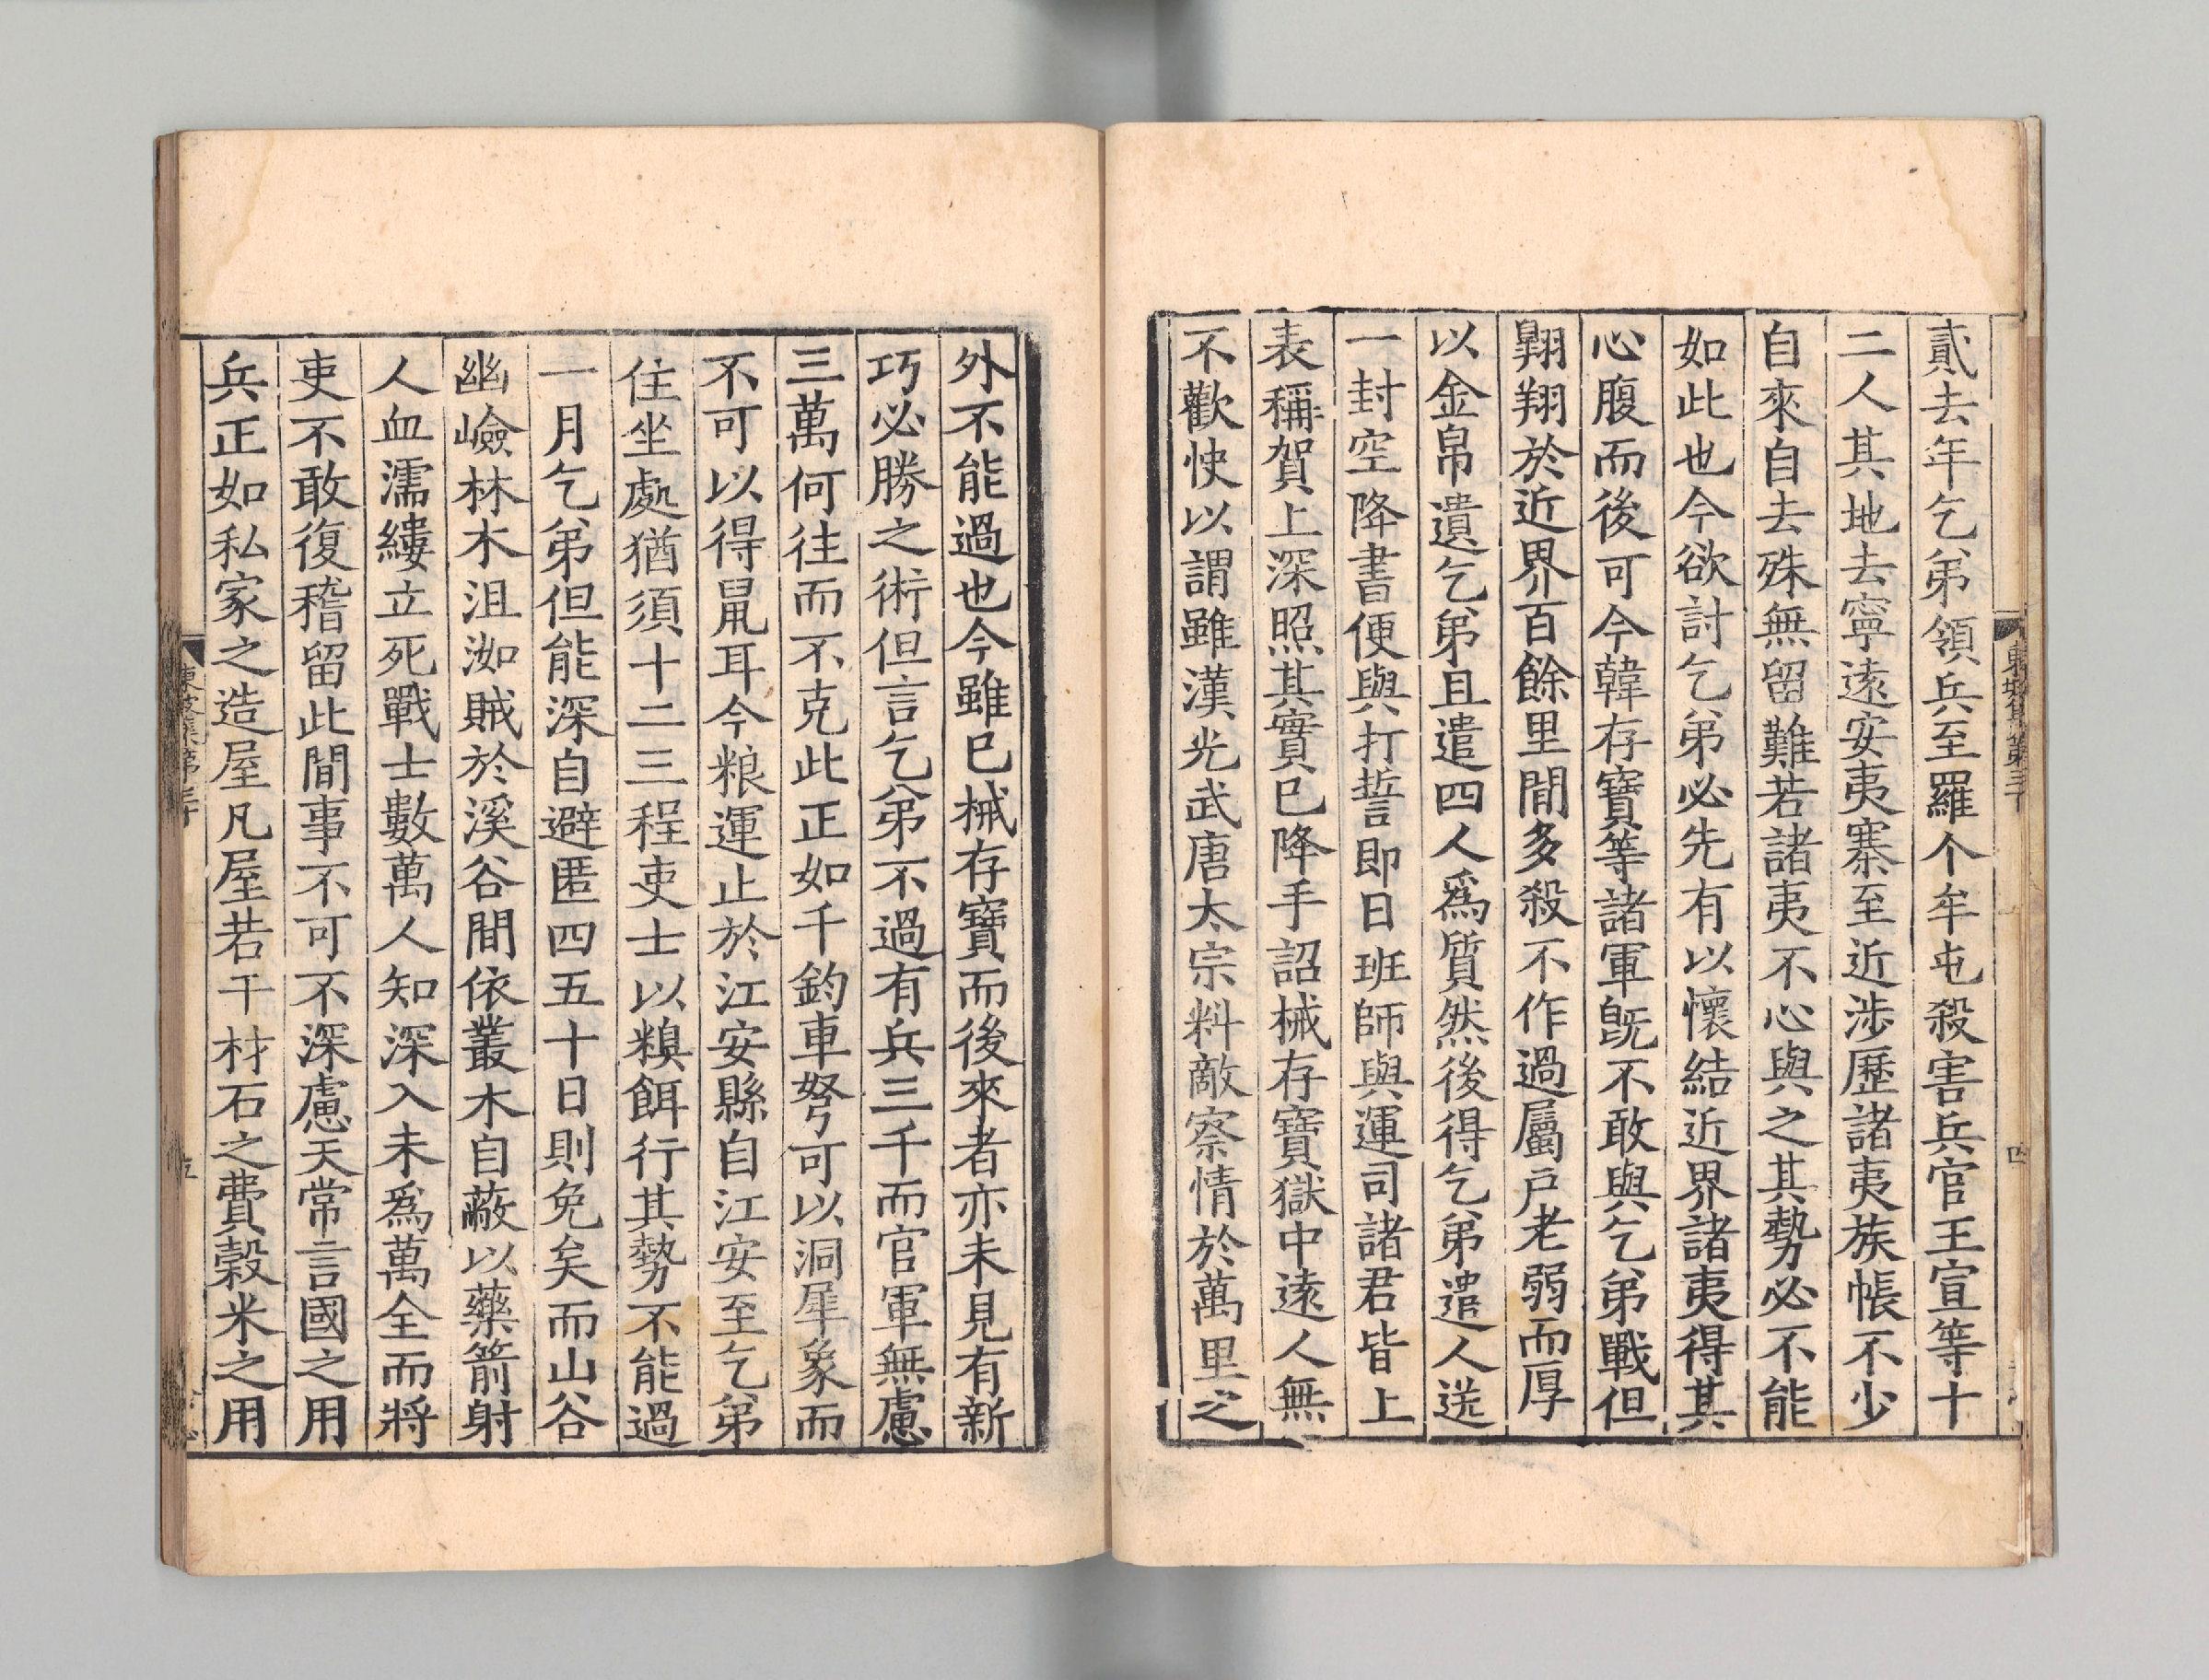 貳去年乞弟領兵至羅个牟屯殺害兵官王宣等十
二人其地去寧遠安夷寨至近涉歷諸夷族帳不少
自來自去殊無留難若諸夷不心與之其勢必不能
如此也今欲討乞弟必先有以懷結近界諸夷得其
心腹而後可今韓存寶等諸軍旣不敢與乞弟戰但
翺翔於近界百餘里間多殺不作過屬戶老弱而厚
以金帛遺乞弟且遣四人爲質然後得乞弟遣人送
一封空降書便與打誓即日班師與運司諸君皆上
表稱賀上深照其實已降手詔械存寶獄中遠人無
不歡快以謂雖漢光武唐太宗料敵察情於萬里之
東坡集第三十
四
外不能過也今雖已械存寶而後來者亦未見有新
巧必勝之術但言乞弟不過有兵三千而官軍無慮
三萬何往而不克此正如千鈞車弩可以洞犀象而
不可以得鼠耳今粮運止於江安縣自江安至乞弟
住坐處猶須十二三程吏士以糗餌行其勢不能過
一月乞弟但能深自避匿四五十日則免矣而山谷
幽嶮林木沮洳賊於溪谷間依叢木自蔽以藥箭射
人血濡縷立死戰士數萬人知深入未爲萬全而將
吏不敢復稽留此間事不可不深慮天常言國之用
兵正如私家之造屋凡屋若干材石之費穀米之用
東坡集第三十
五